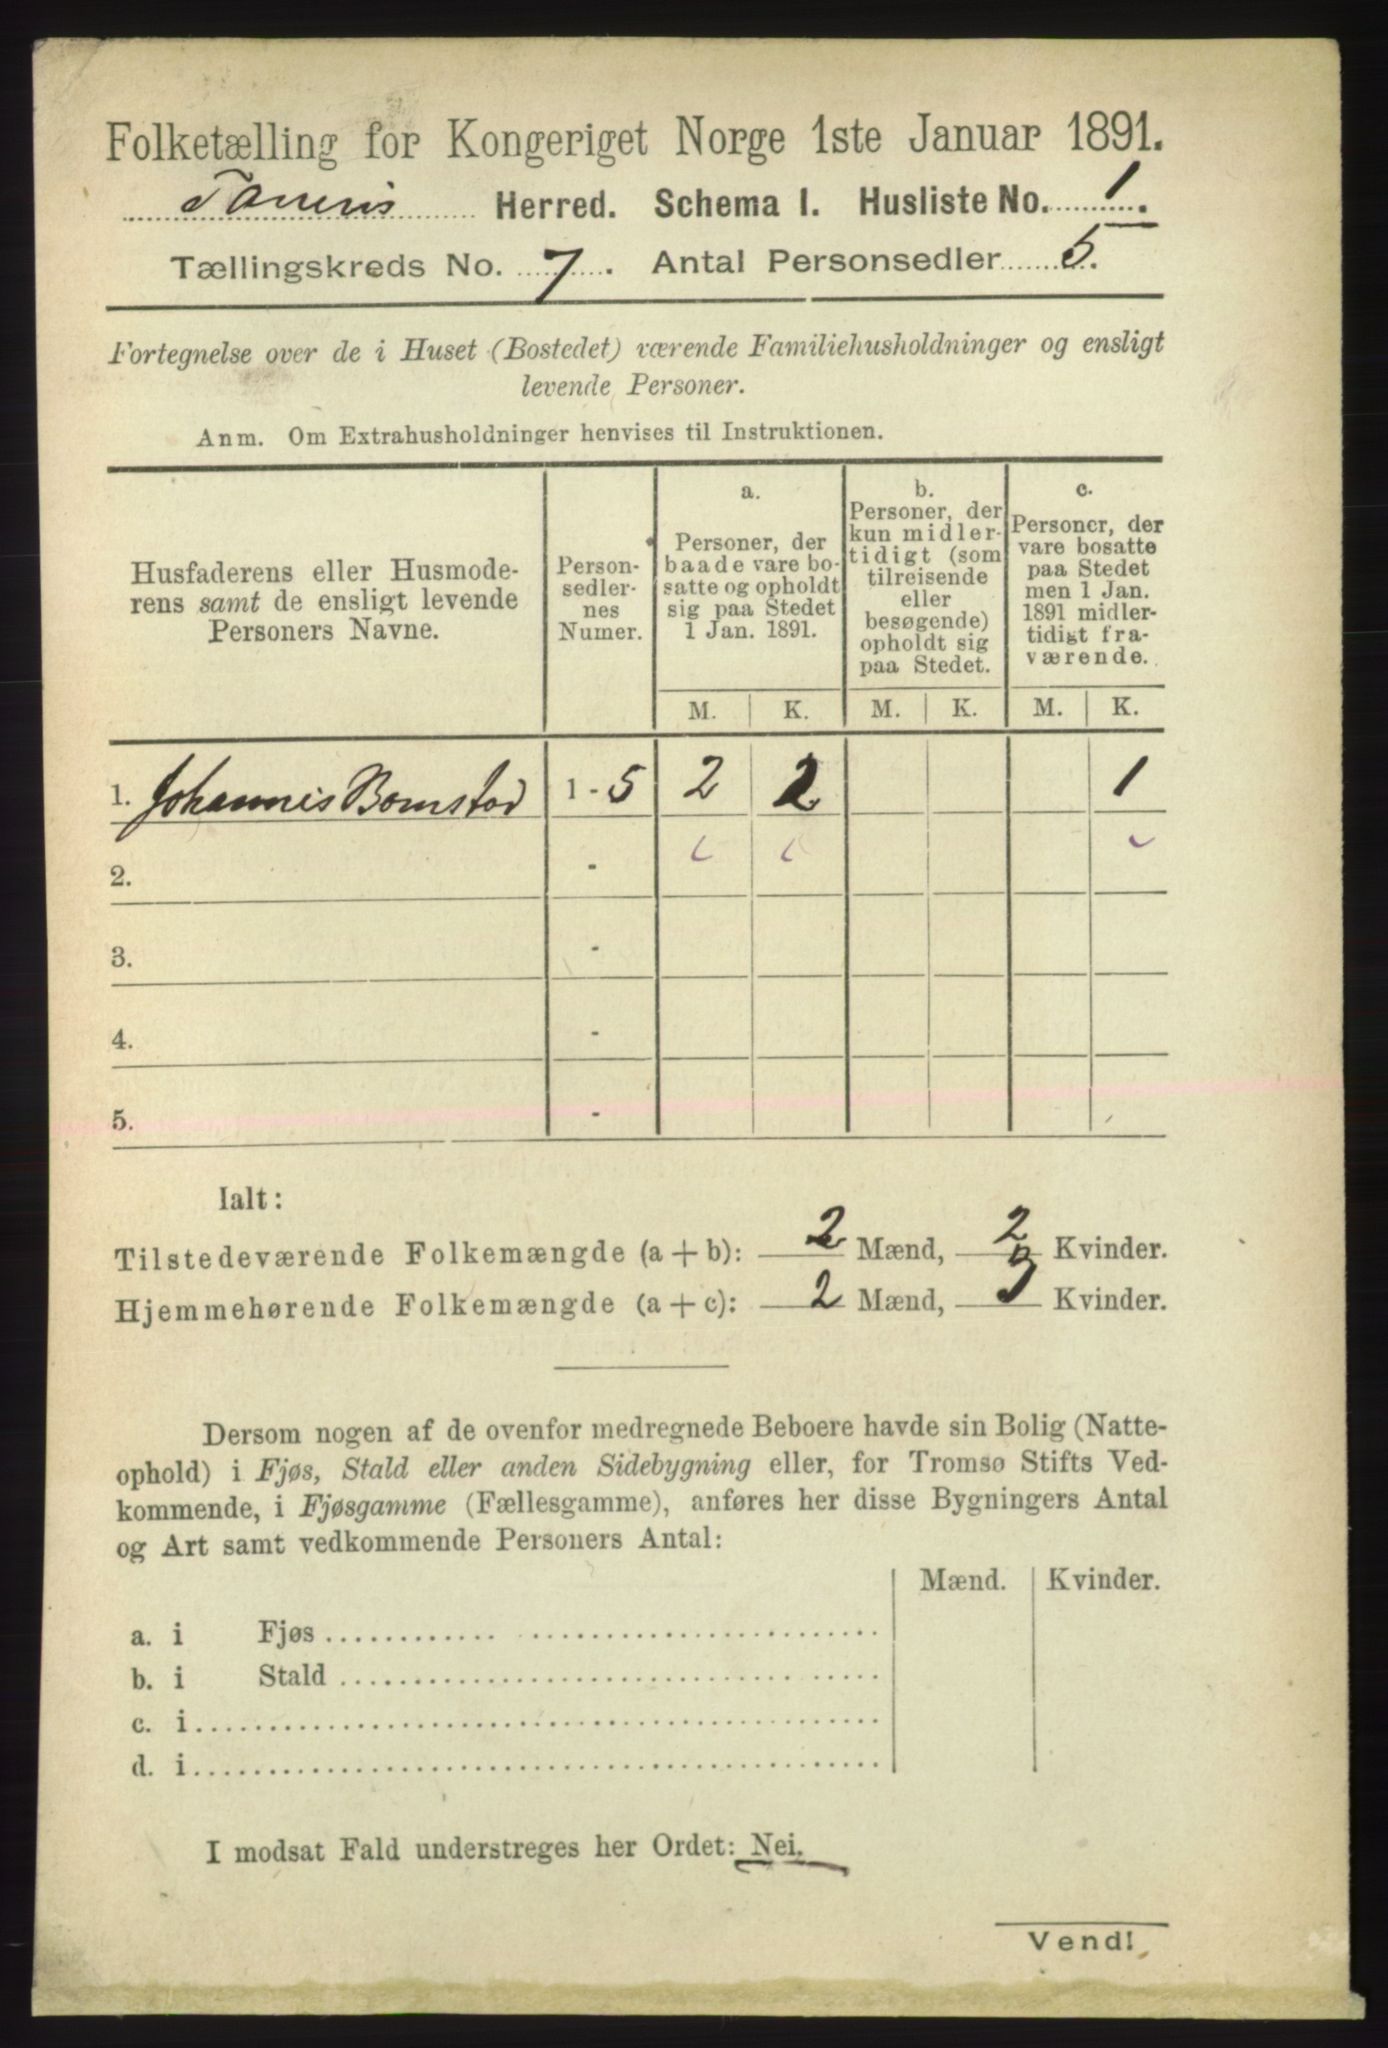 Folketælling for Kongeriget Norge 1ste Januar 1891.
Herred. Schema I. Husliste No. 1.
Tællingskreds No. 7. Antal Personsedler 5.
Fortegnelse over de i Huset (Bostedet) værende Familiehusholdninger og ensligt
levende Personer.
Anm. Om Extrahusholdninger henvises til Instruktionen.
Husfaderens eller Husmode-
rens samt de ensligt levende
Personers Navne.
Person-
sedler-
nes
Numer.
a.
Personer, der
baade vare bo-
satte og opholdt
sig paa Stedet
1 Jan. 1891.
b.
Personer, der
kun midler-
tidigt (som
tilreisende
eller
besøgende)
opholdt sig
paa Stedet.
c.
Personer, der
vare bosatte
paa Stedet
men 1 Jan.
1891 midler-
tidigt fra-
værende.
M. K. M. K. M. K.
1. Johannis Bomstad 1 - 5 2 2 1
2. -
3. -
4. -
5. -
Ialt:
Tilstedeværende Folkemængde (a + b): 2 Mænd, 2 Kvinder.
Hjemmehørende Folkemængde (a + c): 2 Mænd, 3 Kvinder.
Dersom nogen af de ovenfor medregnede Beboere havde sin Bolig (Natte-
ophold) i Fjøs, Stald eller anden Sidebygning eller, for Tromsø Stifts Ved-
kommende, i Fjøsgamme (Fællesgamme), anføres her disse Bygningers Antal
og Art samt vedkommende Personers Antal:
Mænd. Kvinder.
a. i Fjøs
b. i Stald
c. i
d. i
I modsat Fald understreges her Ordet: Nei.
Vend!